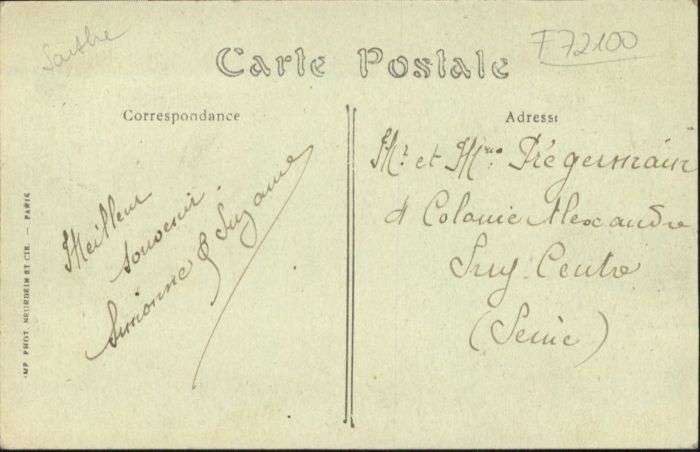 Sarthe
F72100
Carte Postale
Correspondance
Adresse
Meilleur
souvenir
Simonne & Suzanne
Mr et Mme Prégermain
4 Colonie Alexandre
Centre
(Seine)
IMP PHOT NEURDEIN ET CIE. — PARIS